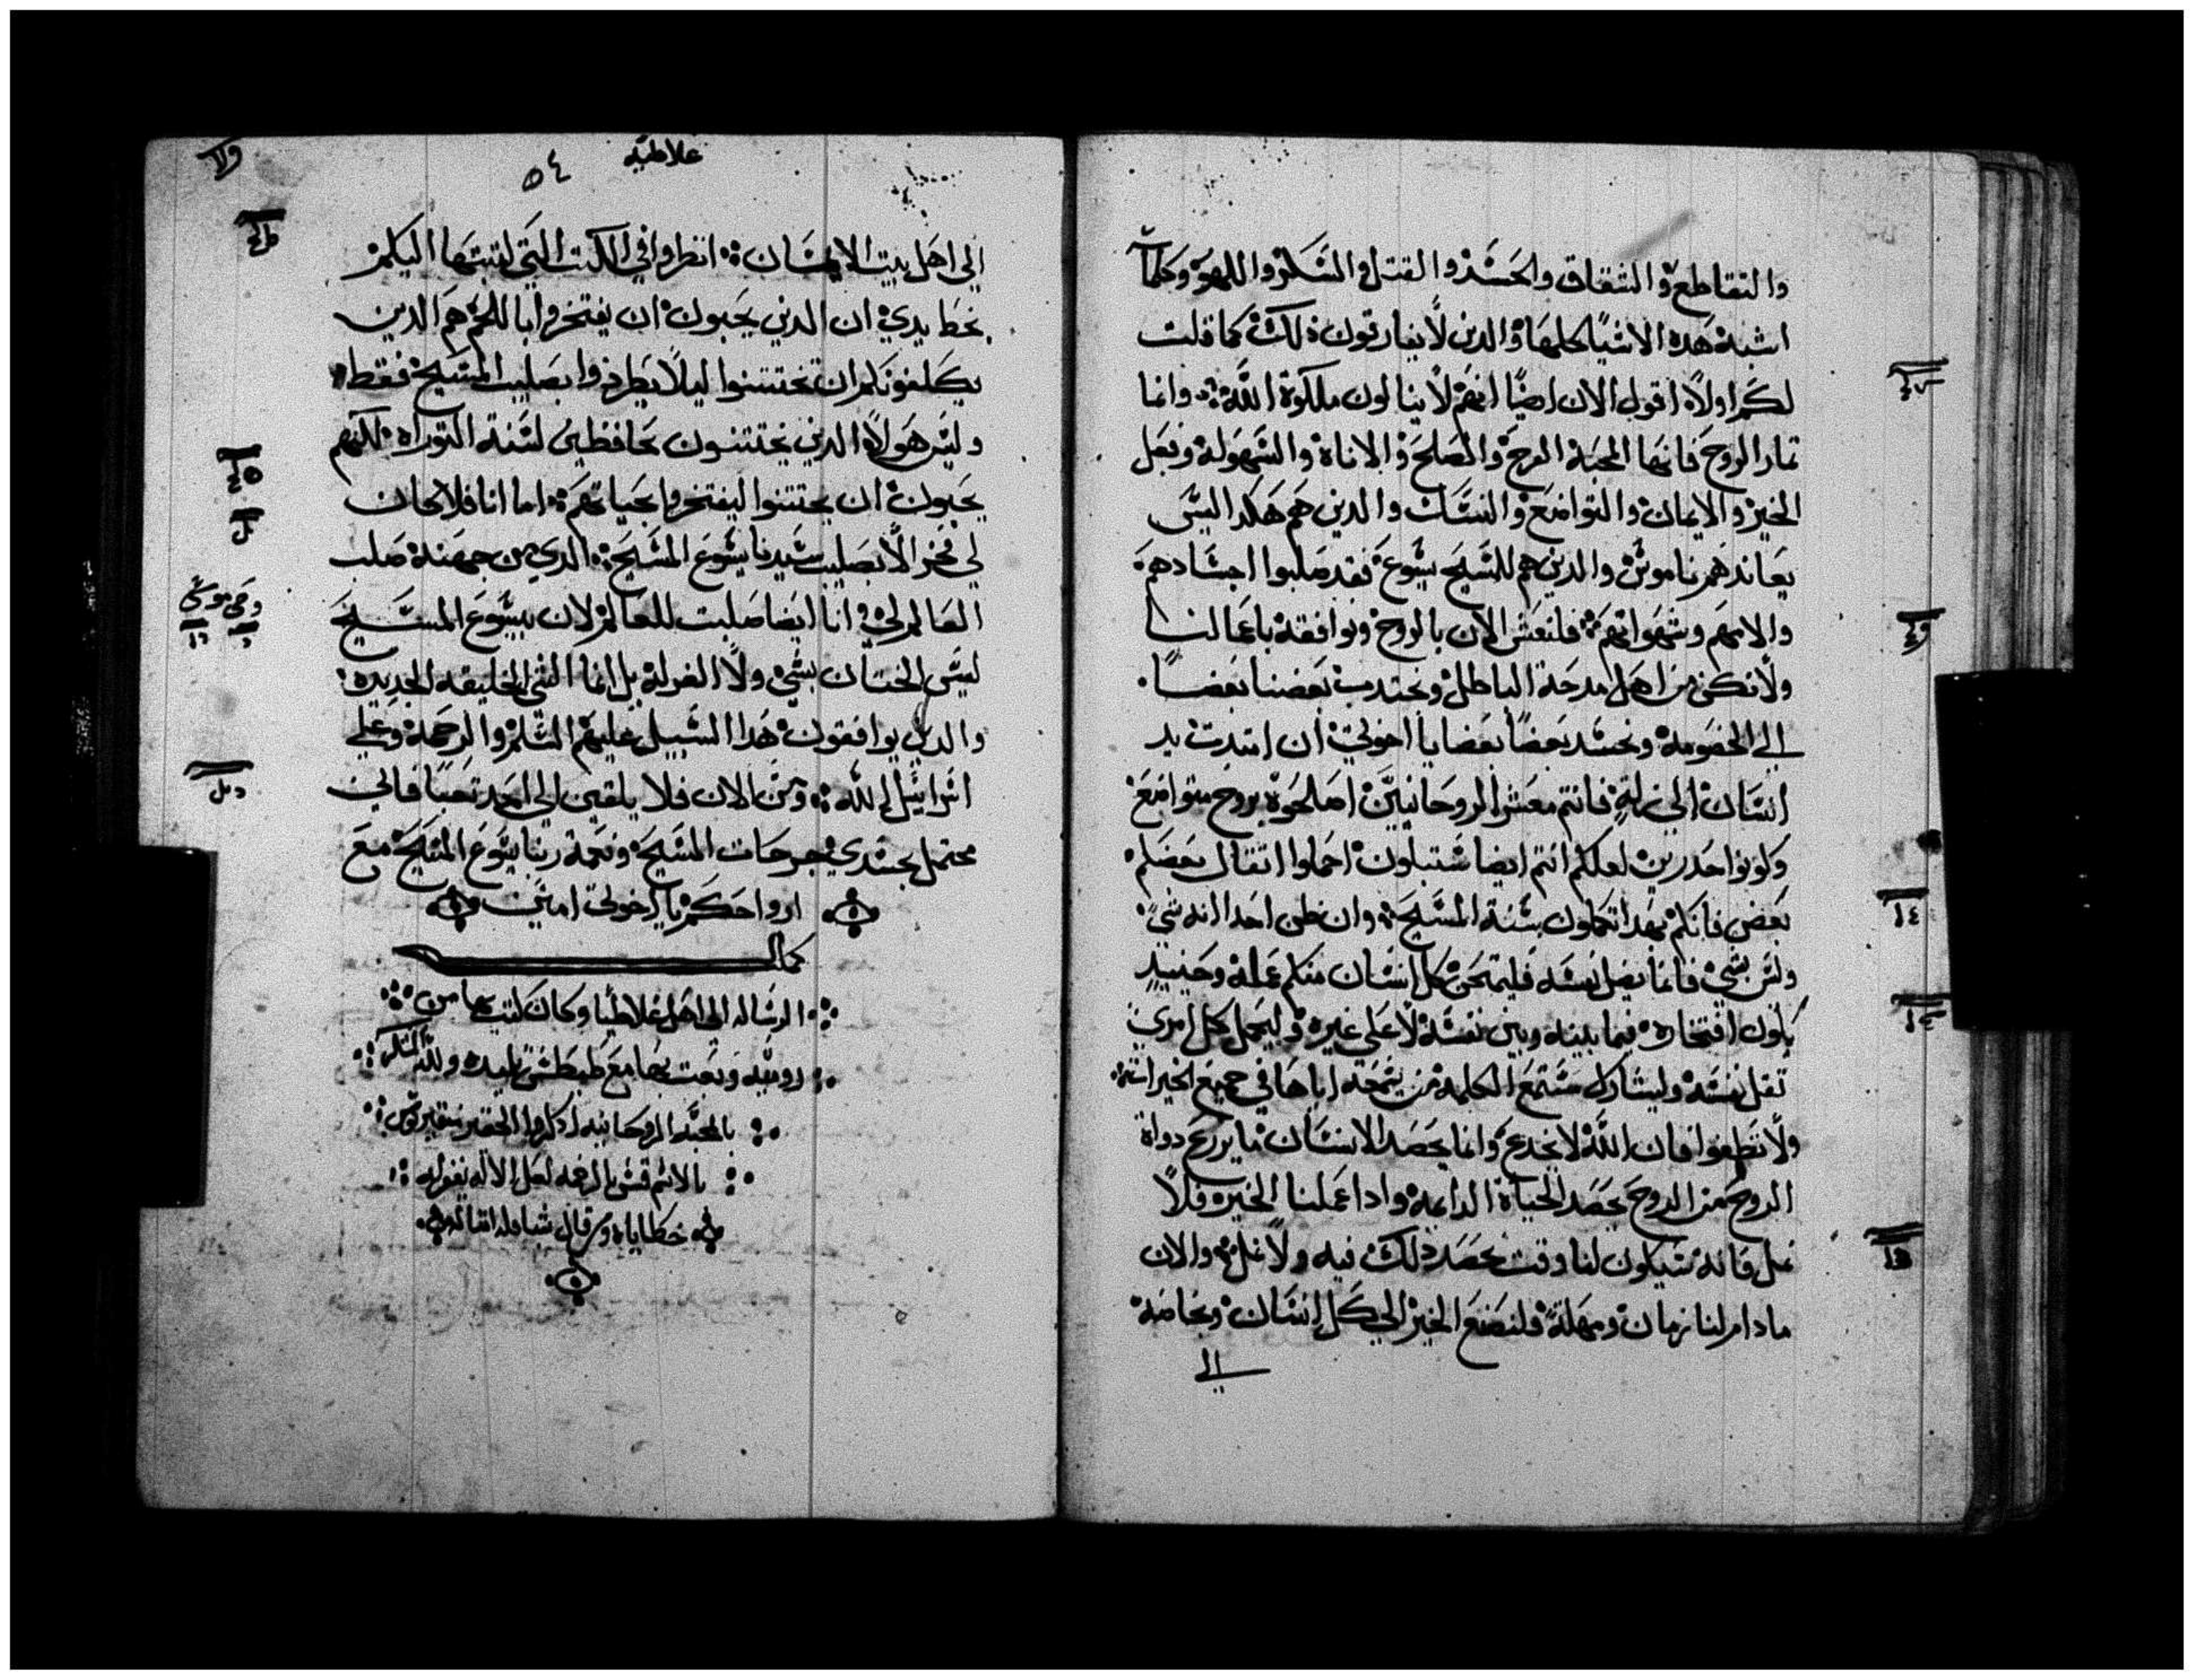 والتقاطع والشقاق والحسد والقتل والسكر واللهو وكلما
اشبه هده الاشيا كلها والدين لا يفارقون ذلك كما قلت
لكم اولا اقول الان ايضا انهم لا ينالون ملكوة الله وانما
تمار الروح فانها المحبة الفرح والصلح والاناة والسهولة وفعل
الخير والايمان والتواضع والنسك والدين هم هكدا ليس
يعاندهم ناموس والدين هم للمسيح يسوع فقد صلبوا اجسادهم
والامهم وشهواتهم فلنعش الان بالروح ونوافقه باعمالنا
ولا نكن من اهل مدحة الباطل ونجتدب بعضنا بعضا
الي الخصومة ونحسد بعضا بعضا يا اخوتي ان ابتدت يد
انسان الي زلة فانتم معشر الروحانيين اصلحوه بروح متواضع
وكونوا حدرين لعلكم انتم ايضا ستبتلون احملوا اتقال بعضكم
بعض فانكم بهدا تكملون سنة المسيح وان ظن احدا انه شي
وليس بشي فانما يضل نفسه فليمتحن كل انسان منكم عمله وحينيد
يكون افتخاره فيما بينه وبين نفسه لا علي غيره وليحمل كل امري
تقل نفسه وليشارك مستمع الكلمة من يسمعه اياها في جميع الخيرات
ولا تطغوا فان الله لا يخدع وانما يحصد الانسان ما يزرع
الروح من الروح يحصد الحياة الدايمة وادا عملنا الخير فلا
نمل فانه سيكون لنا وقت نحصد ذلك فيه ولا نمل والان
مادام لنا زمان ومهلة فلنصنع الخير الي كل انسان وبخاصة
الي
غلاطية
٥٤
الي اهل بيت الايمان انظروا في الكتب التي كتبتها اليكم
بخط يدي ان الدين يحبون ان يفتخروا باللحم هم الدين
يكلفونكم ان تختتنوا ليلا يطردوا بصليب المسيح فقط
وليس هولاء الدين يختتنون بحافظين لسنة التوراه لكنهم
يحبون ان يختتنوا ليفتخروا اما انا فلا كان
لي فخر الا بصليب سيدنا يسوع المسيح الدي من جهته صلب
العالم لي وانا ايضا صلبت للعالم لان بيسوع المسيح
ليس الختان بشي ولا الغرلة بل انما الشي الخليقه الجديده
والدين يوافقون هدا السبيل عليهم السلم والرحمة وعلي
اسرائيل الله ومن الان فلا يلقين الي احد تعبا فاني
محتمل بجسدي جرحات المسيح ونعمة ربنا يسوع المسيح مع
ارواحكم يا اخوتي امين
كملت
الرساله الي اهل غلاطيا وكان كتب بها من
روميه وبعت بها مع طيطس تلميده ولله الشكر
بالمحبه الروحانيه ادكروا الحقير
بالاسم قس بالرغبه لعل الاله يغفر له
خطاياه ومن قال شيا فله امثاله